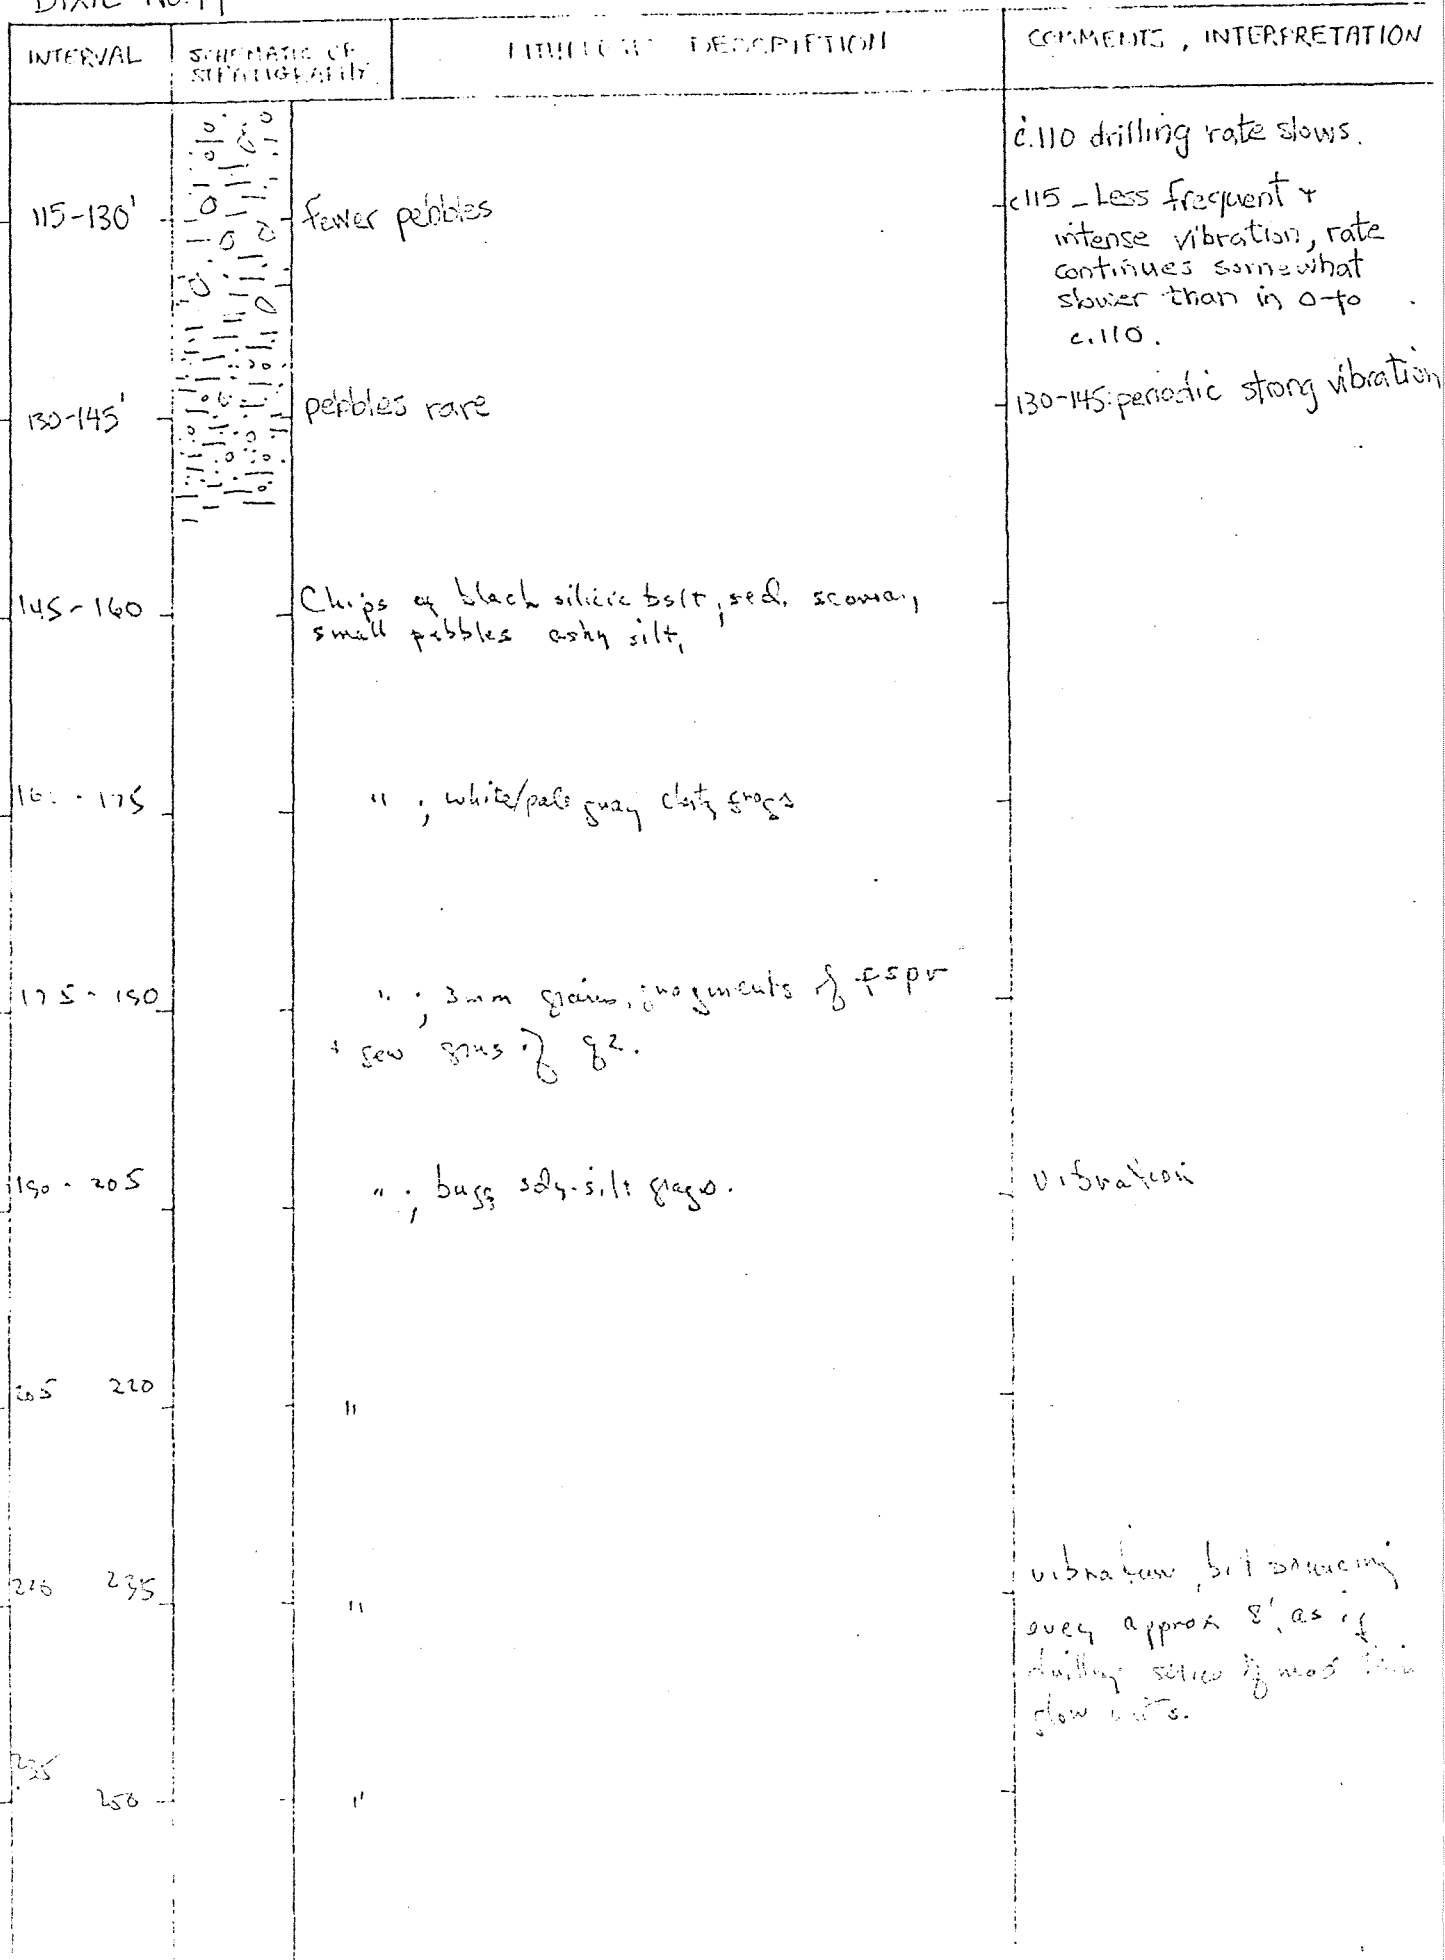 INTERVAL
SCHEMATIC OF
STRATIGRAPHY
LITHOLOGIC DESCRIPTION
COMMENTS, INTERPRETATION
c.110 drilling rate slows.
115-130'
fewer pebbles
c115 - Less frequent +
intense vibration, rate
continues somewhat
slower than in 0-to
c.110.
130-145'
pebbles rare
130-145: periodic strong vibration
145-160
Chips of black silicic bslt, red. scoria,
small pebbles ashy silt,
175
" ; white/pale gray clsty frags
175-190
" ; 3mm grains, fragments of fspr
+ few grns of qz.
190-205
" ; buff sdy-silt frags.
vibration
205 220
"
220 235
"
vibration, bit bouncing
every approx 8', as if
drilling series of thin
flow units.
235
250
"